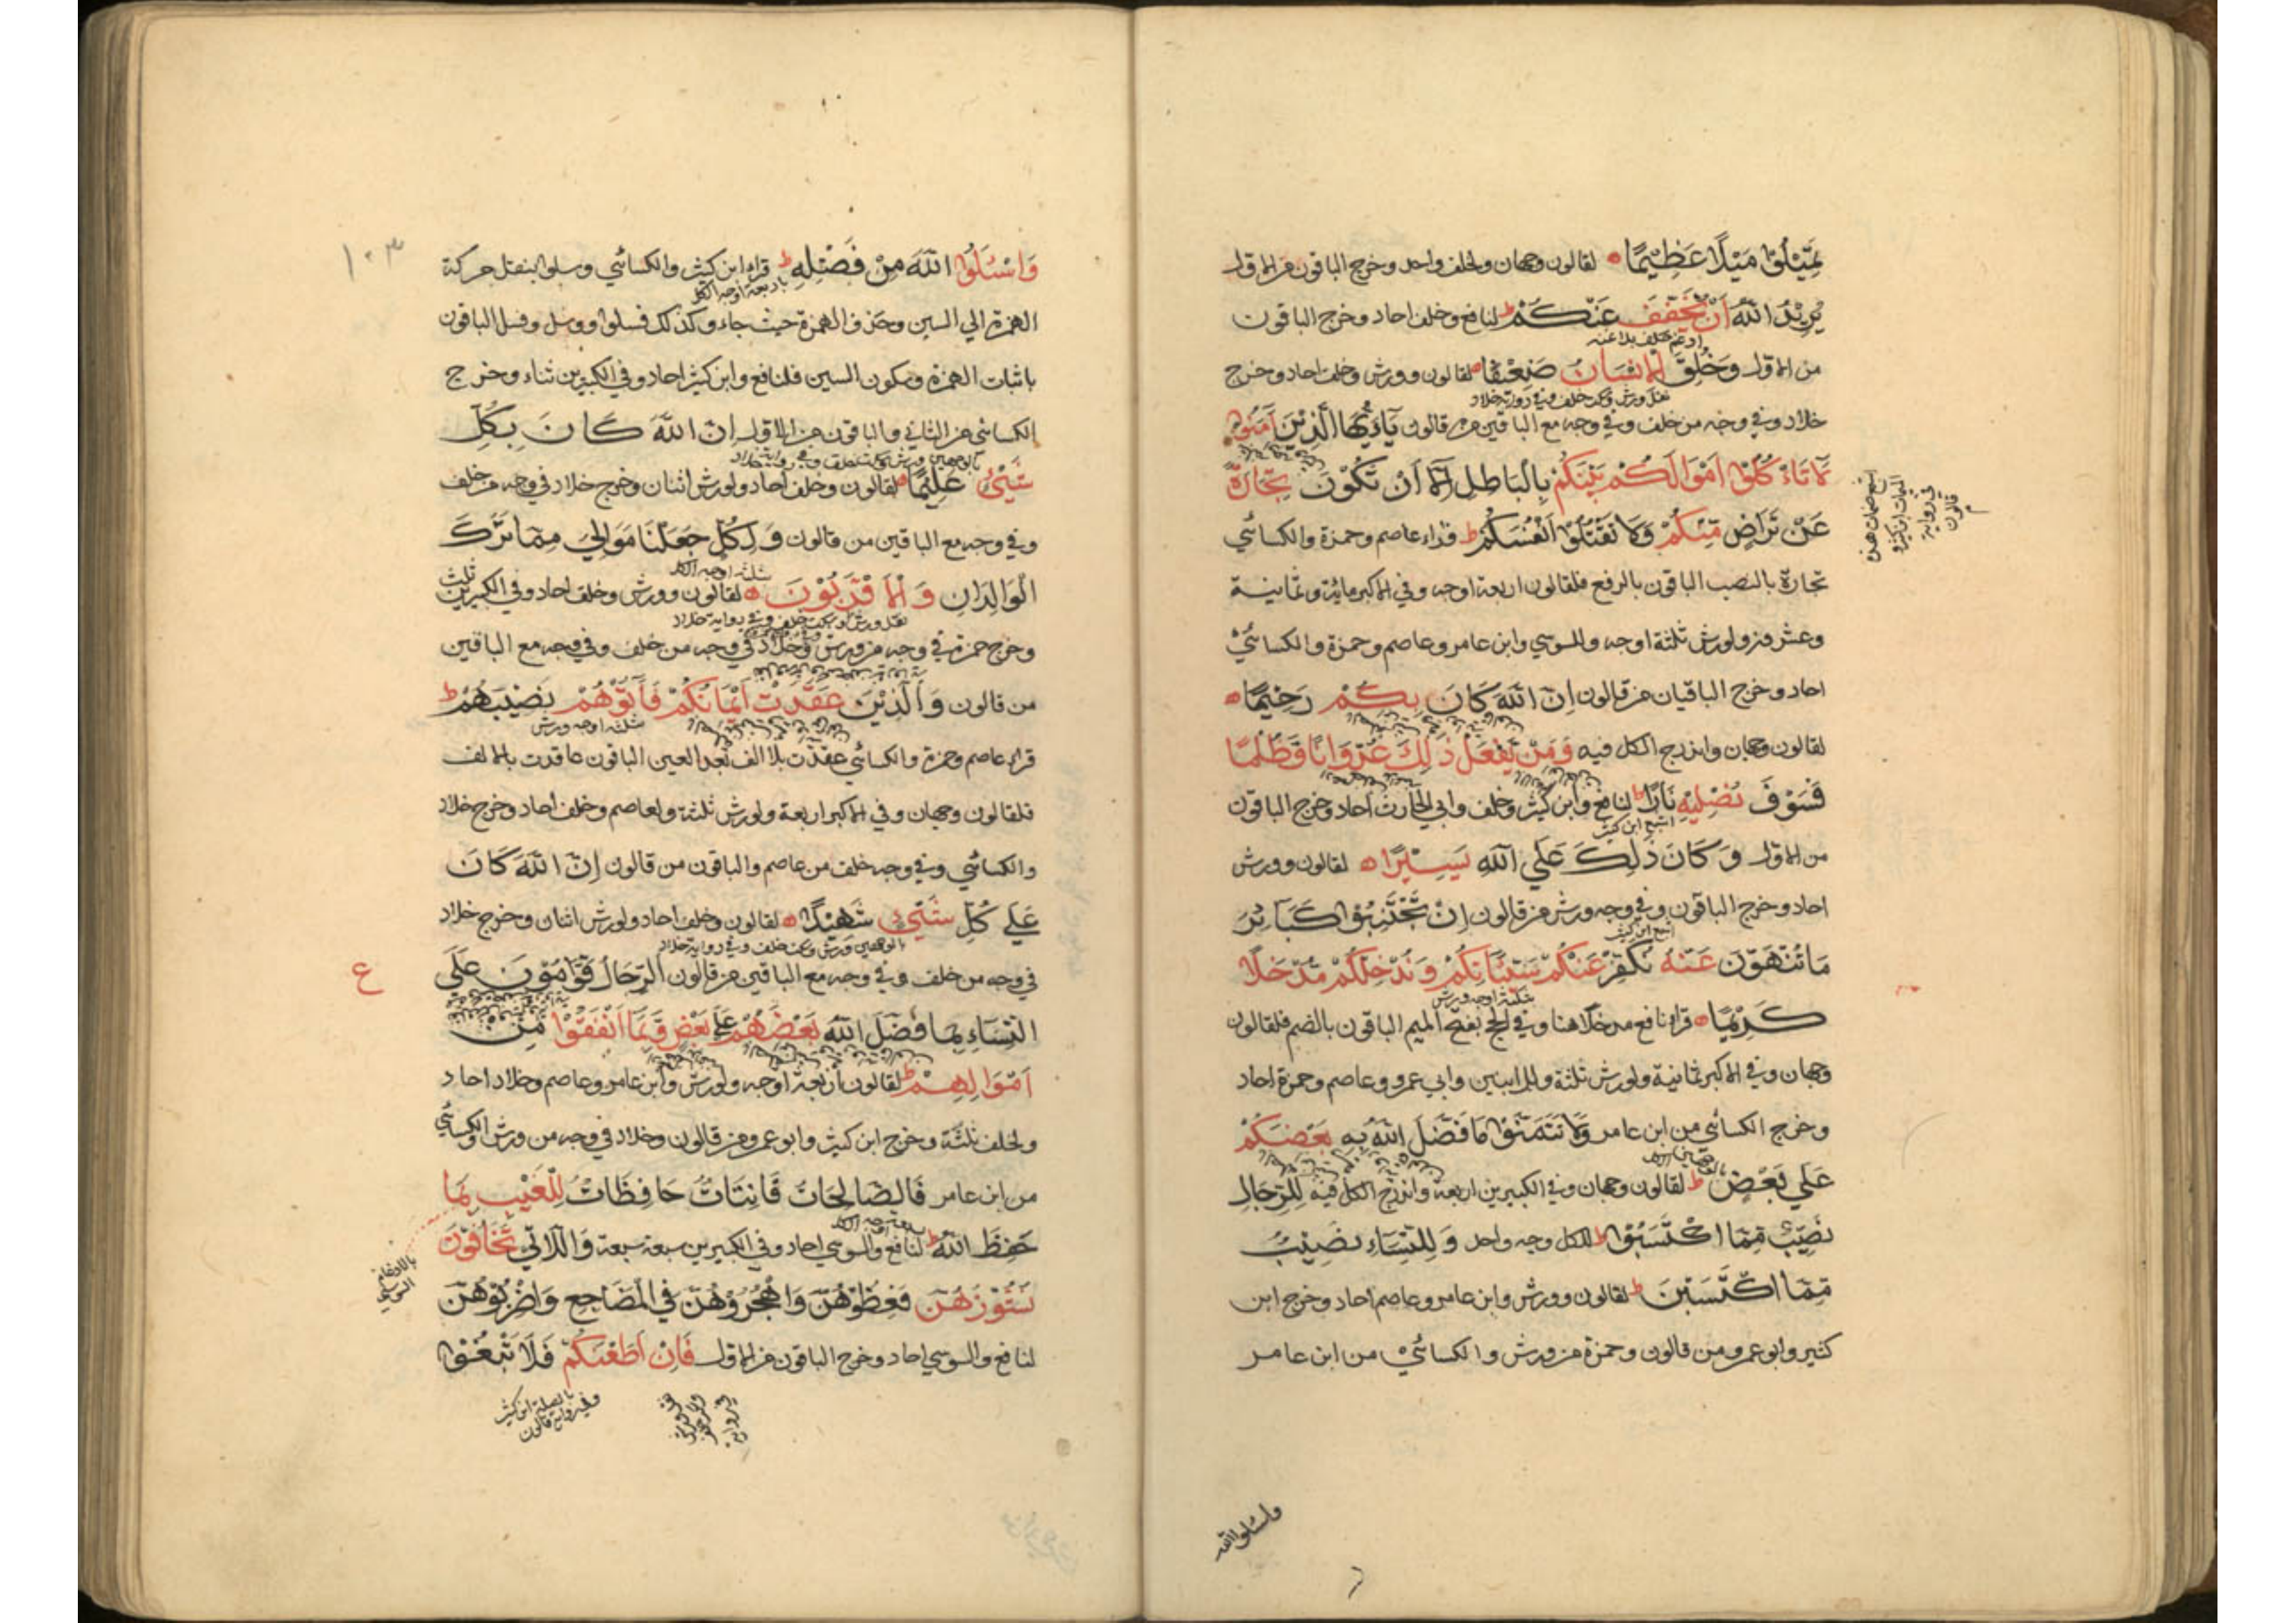 تَمِيْلُوْا مَيْلًا عَظِيْمًا لقالون وجهان ولخلف واحد وخرج الباقون من الاول
يُرِيْدُ اللّٰهُ اَنْ يُّخَفِّفَ عَنْكُمْ لنافع وخلف احاد وخرج الباقون
ادغم خلف بلا غنه
من الاول وَخُلِقَ الْاِنْسَانُ ضَعِيْفًا لقالون وورش وخلف احاد وخرج
خلاد وفي وجه من خلف وفي وجه مع الباقين من قالون يَاءَيُّهَا الَّذِيْنَ اٰمَنُوْا
لَا تَاْءكُلُوْا اَمْوَالَكُمْ بَيْنَكُمْ بِالْبَاطِلِ اِلَّا اَنْ تَكُوْنَ تِجَارَةً
عَنْ تَرَاضٍ مِّنْكُمْ وَلَا تَقْتُلُوْا اَنْفُسَكُمْ قراء عاصم وحمزة والكسائي
تجارة بالنصب الباقون بالرفع فلقالون اربعة اوجه وفي الاكبر مائة وثمانية
وعشرون ولورش ثلثة اوجه وللسوسي وابن عامر وعاصم وحمزة والكسائي
احاد وخرج الباقيان من قالون اِنَّ اللّٰهَ كَانَ بِكُمْ رَحِيْمًا
لقالون وجهان واندرج الكل فيه وَمَنْ يَّفْعَلْ ذٰلِكَ عُدْوَانًا وَّظُلْمًا
فَسَوْفَ نُصْلِيْهِ نَارًا لنافع وابن كثير وخلف وابي الحارث احاد وخرج الباقون
اشبع ابن كثير
من الاول وَكَانَ ذٰلِكَ عَلَي اللّٰهِ يَسِيْرًا لقالون وورش
احاد وخرج الباقون وفي وجه ورش من قالون اِنْ تَجْتَنِبُوْا كَبَآئِرَ
اشبع ابن كثير
مَا تُنْهَوْنَ عَنْهُ نُكَفِّرْ عَنْكُمْ سَيِّئَاتِكُمْ وَنُدْخِلْكُمْ مُّدْخَلًا
ثلثة اوجه ورش
كَرِيْمًا قراء نافع مدخلا هنا وفي الحج بفتح الميم الباقون بالضم فلقالون
وجهان وفي الاكبر ثمانية ولورش ثلثة وللابنين وابي عمرو وعاصم وحمزة احاد
وخرج الكسائي من ابن عامر وَلَا تَتَمَنَّوْا مَا فَضَّلَ اللّٰهُ بِهٖ بَعْضَكُمْ
عَلَي بَعْضٍ لقالون وجهان وفي الكبيرين اربعة واندرج الكل فيه لِلرِّجَالِ
نَصِيْبٌ مِّمَّا اكْتَسَبُوْا للكل وجه واحد وَلِلنِّسَاءِ نَصِيْبٌ
مِّمَّا اكْتَسَبْنَ لقالون وورش وابن عامر وعاصم احاد وخرج ابن
كثير وابو عمرو من قالون وحمزة من ورش والكسائي من ابن عامر
واسئلوا الله
١٠٣
وَاسْئَلُوا اللّٰهَ مِنْ فَضْلِهٖ قراء ابن كثير والكسائي وسلوا بنقل حركة
باربعة اوجه الكل
الهمزة الي السين وحذف الهمزة حيث جاء وكذلك فسلوا ووسل وفسل الباقون
باثبات الهمزة وسكون السين فلنافع وابن كثير احاد وفي الكبيرين ثناء وخرج
الكسائي من الثاني والباقون من الاول اِنَّ اللّٰهَ كَانَ بِكُلِّ
شَيْئٍ عَلِيْمًا لقالون وخلف احاد ولورش اثنان وخرج خلاد في وجه من خلف
وفي وجه مع الباقين من قالون وَلِكُلٍّ جَعَلْنَا مَوَالِيَ مِمَّا تَرَكَ
الْوَالِدَانِ وَالْاَقْرَبُوْنَ لقالون وورش وخلف احاد وفي الكبيرين ثلث
وخرج حمزة في وجه من ورش وخلاد في وجه من خلف وفي وجه مع الباقين
من قالون وَالَّذِيْنَ عَقَدَتْ اَيْمَانُكُمْ فَاٰتُوْهُمْ نَصِيْبَهُمْ
ثلثة اوجه ورش
قراء عاصم وحمزة والكسائي عقدت بلا الف بعد العين الباقون عاقدت بالالف
فلقالون وجهان وفي الاكبر اربعة ولورش ثلثة ولعاصم وخلف احاد وخرج خلاد
والكسائي وفي وجه خلف من عاصم والباقون من قالون اِنَّ اللّٰهَ كَانَ
عَلٰي كُلِّ شَيْئٍ شَهِيْدًا لقالون وخلف احاد ولورش اثنان وخرج خلاد
بالوجهين ورش وسكت خلف وفي رواية خلاد
في وجه من خلف وفي وجه مع الباقين من قالون اَلرِّجَالُ قَوَّامُوْنَ عَلَي
ع
النِّسَاءِ بِمَا فَضَّلَ اللّٰهُ بَعْضَهُمْ عَلٰي بَعْضٍ وَّبِمَا اَنْفَقُوْا مِنْ
اَمْوَالِهِمْ لقالون اربعة اوجه ولورش وابن عامر وعاصم وخلاد احاد
ولخلف ثلثة وخرج ابن كثير وابو عمرو من قالون وخلاد في وجه من ورش والكسائي
من ابن عامر فَالصَّالِحَاتُ قَانِتَاتٌ حَافِظَاتٌ لِّلْغَيْبِ بِمَا
حَفِظَ اللّٰهُ لنافع والسوسي احاد وفي الكبيرين سبعة سبعة وَالّٰلاتِيْ تَخَافُوْنَ
بالادغام السوسي
نُشُوْزَهُنَّ فَعِظُوْهُنَّ وَاهْجُرُوْهُنَّ فِي الْمَضَاجِعِ وَاضْرِبُوْهُنَّ
لنافع والسوسي احاد وخرج الباقون من الاول فَاِنْ اَطَعْنَكُمْ فَلَا تَبْغُوْا
بالصلة ابن كثير
وفي رواية قالون